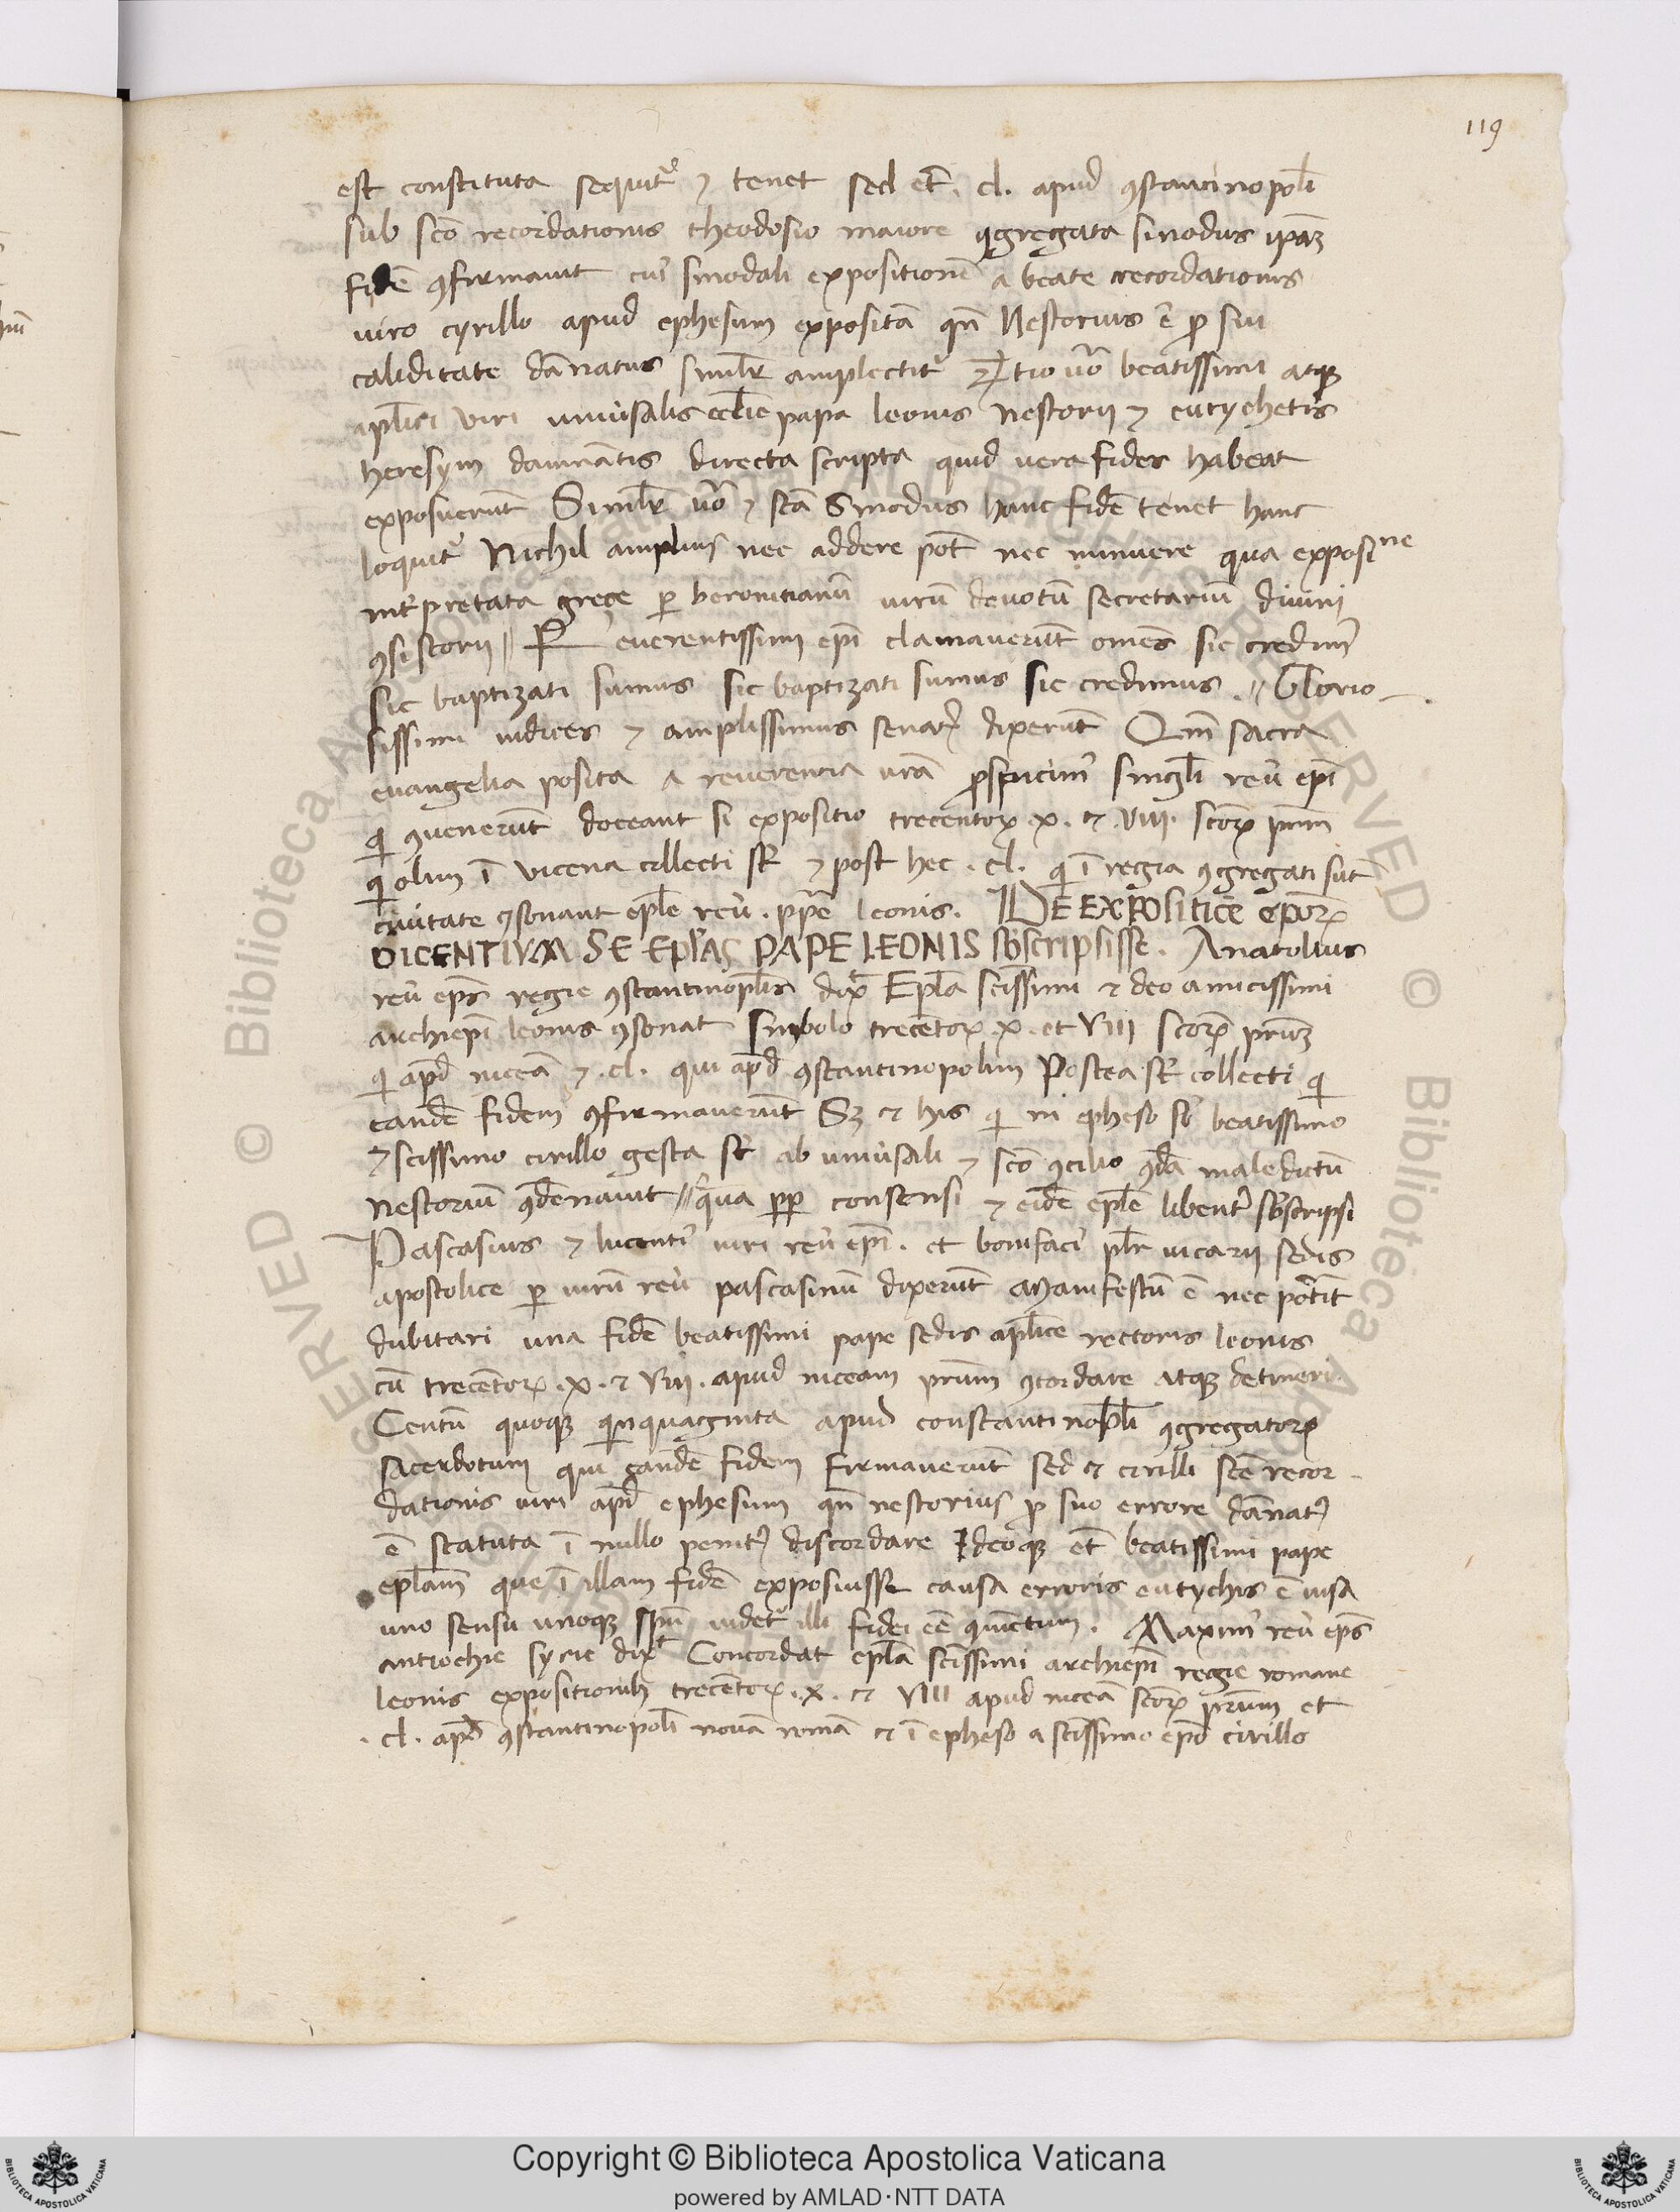 119
est constituta sequit᷒ ⁊ tenet sed et̅. cl. apud ꝯstantinopoli̅
sub sc̅o recordationis theodosio maiore ꝯgregata sinodus ip̅aꝫ
fide̅ ꝯfirmauit cui᷒ sinodali expositione̅ a beate recordationis
uiro cyrillo apud ephesum exposita̅ qn̅ Nestorius e̅ ꝓ sui
caliditate da̅natus simil̅r amplectit᷒ tio u̅o beatissimi atqꝫ
apl̅ici viri uniu̅salis eccl̅ie papa leonis nestorij ⁊ eutychetis
heresym damna̅tis directa scripta quid uera fides habeat
exposuerunt̅ Simil̅r u̅o ⁊ sc̅a Sinodus hanc fide̅ tenet hanc
loquit᷒ Nichil amplius nec addere pot̅ nec minuere qua exposi ne
int̅pretata grece ꝑ beronitianu̅ uiru̅ deuotu̅ secretariu̅ diuini
ꝯsistorij // Reuerentissimi ep̅i clamaueru̅t om̅es sic credim᷒
sic baptizati sumus sic baptizati sumus sic credimus . // Glorio
sissimi iudices ⁊ amplissimus senat᷒ dixeru̅t Qm̅ sacra
euangelia posita a reuerencia ur̅a ꝓspicim᷒ singl̅i reu̅ ep̅i
qi ꝯueneru̅t doceant si expositio trecentoꝝ .x. et .viii. sc̅oꝝ pr̅um
qi olim i̅ vicena collecti st̅ ⁊ post hec . cl. qi i̅ regia ꝯgregati su̅t
ciuitate ꝯsonant epl̅e reu̅ . pp̅e leonis. DE EXPOSITICE ep̅oꝝ
DICENTIVM SE EPl̅As PAPE LEONIS sb̅scripsisse. Anatolius
reu̅ ep̅s regie ꝯstantinopl̅is dix̅ Epl̅a sc̅issimi et deo amicissimi
archiep̅i leonis ꝯsonat simbolo trece̅toꝝ .x. et VIII sc̅oꝝ pr̅uꝫ
qi ap̅d nicea̅ ⁊ .cl. qui ap̅d ꝯstantinopolim Postea st̅ collecti qi
eande̅ fidem ꝯfirmaueru̅t Sꝫ et his qi in epheso sb̅ beatissimo
⁊ sc̅issimo cirillo gesta st̅ ab uniu̅sali ⁊ sc̅o ꝯcilio maledictu̅
nestoriu̅ ꝯde̅nauit // qua pp̅ consensi ⁊ eide̅ epl̅e libent̅ sb̅scripsi
Pascasius ⁊ lucenti᷒ uiri reu̅ ep̅i . et bonifaci᷒ pb̅r uicarij sedis
apostolice ꝑ uiru̅ reu̅ pascasinu̅ dixeru̅t Manifestu̅ e̅ nec pot̅it
dubitari una fide̅ beatissimi pape sedis apl̅ice rectoris leonis
cu̅ trece̅toꝝ .x. et viii. apud niceam pr̅um ꝯcordare atqꝫ detineri.
Centu̅ quoqꝫ qi̅nquaginta apud constantinopl̅i ꝯgregatoꝝ
sacerdotum qui eande̅ fidem firmaueru̅t sed et cirilli sc̅e recor
dationis uiri ap̅d ephesum qn̅ nestorius ꝓ suo errore da̅nat᷒
e̅ statuta i̅ nullo penit᷒ discordare Ideoqꝫ et̅ beatissimi pape
epl̅am que i̅ illam fide̅ exposuisse causa erroris eutychis e̅ uisa
uno sensu unoqꝫ sp̅u uidet᷒ illi fidei e̅e . Maxim᷒ reu̅ ep̅s
antiochie syrie dix̅ Concordat epl̅a sc̅issimi archiep̅i regie romane
leonis expositionibꝫ trece̅toꝝ .x. et VIII apud nicea̅ sc̅oꝝ pr̅um et
. cl. ap̅d ꝯstantinopoli̅ noua̅ roma̅ et i̅ epheso a sc̅issimo ep̅o cirillo
Copyright © Biblioteca Apostolica Vaticana
powered by AMLAD·NTT DATA